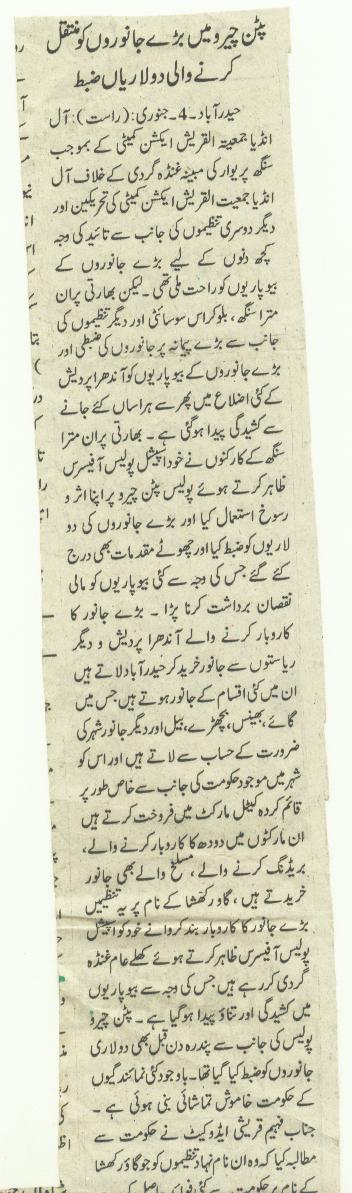 پٹن چیرو میں بڑے جانوروں کو منتقل
کرنے والی دو لاریاں ضبط
حیدرآباد۔4۔جنوری:(راست): آل
انڈیا جمعیتہ القریش ایکشن کمیٹی کے بموجب
سنگھ پریوار کی مبینہ غنڈہ گردی کے خلاف آل
انڈیا جمعیت القریش ایکشن کمیٹی کی تحریکیں اور
دیگر دوسری تنظیموں کی جانب سے تائید کی وجہ
کچھ دنوں کے لیے بڑے جانوروں کے
بیوپاریوں کو راحت ملی تھی۔ لیکن بھارتی پران
مترا سنگھ، بلوکراس سوسائٹی اور دیگر تنظیموں کی
جانب سے بڑے پیمانہ پر جانوروں کی ضبطی اور
بڑے جانوروں کے بیوپاریوں کو آندھرا پردیش
کے کئی اضلاع میں پھر سے ہراساں کئے جانے
سے کشیدگی پیدا ہو گئی ہے۔ بھارتی پران مترا
سنگھ کے کارکنوں نے خود اسپیشل پولیس آفیسرس
ظاہر کرتے ہوئے پولیس پٹن چیرو پر اپنا اثر و
رسوخ استعمال کیا اور بڑے جانوروں کی دو
لاریوں کو ضبط کیا اور چھوٹے مقدمات بھی درج
کئے گئے جس کی وجہ سے کئی بیوپاریوں کو مالی
نقصان برداشت کرنا پڑا۔ بڑے جانور کا
کاروبار کرنے والے آندھرا پردیش و دیگر
ریاستوں سے جانور خرید کر حیدرآباد لاتے ہیں
ان میں کئی اقسام کے جانور ہوتے ہیں جس میں
گائے، بھینس، بچھڑے، بیل اور دیگر جانور شہر کی
ضرورت کے حساب سے لاتے ہیں اور اس کو
شہر میں موجود حکومت کی جانب سے خاص طور پر
قائم کردہ کیٹل مارکٹ میں فروخت کرتے ہیں
ان مارکٹوں میں دودھ کا کاروبار کرنے والے،
بریڈنگ کرنے والے، مسلخ والے بھی جانور
خریدتے ہیں، گاورکھشا کے نام پر یہ تنظیمیں
بڑے جانور کا کاروبار بند کروانے خود کو اسپیشل
پولیس آفیسرس ظاہر کرتے ہوئے کھلے عام غنڈہ
گردی کر رہے ہیں جس کی وجہ سے بیوپاریوں
میں کشیدگی اور تناؤ پیدا ہو گیا ہے۔ پٹن چیرو
پولیس کی جانب سے پندرہ دن قبل بھی دو لاری
جانوروں کو ضبط کیا گیا تھا۔ باوجود کئی نمائندگیوں
کے حکومت خاموش تماشائی بنی ہوئی ہے۔
جناب فہیم قریشی ایڈوکیٹ نے حکومت سے
مطالبہ کیا کہ وہ ان نام نہاد تنظیموں کو جو گاؤ رکھشا
کے نام پر حکومت سے کئی فوائد حاصل